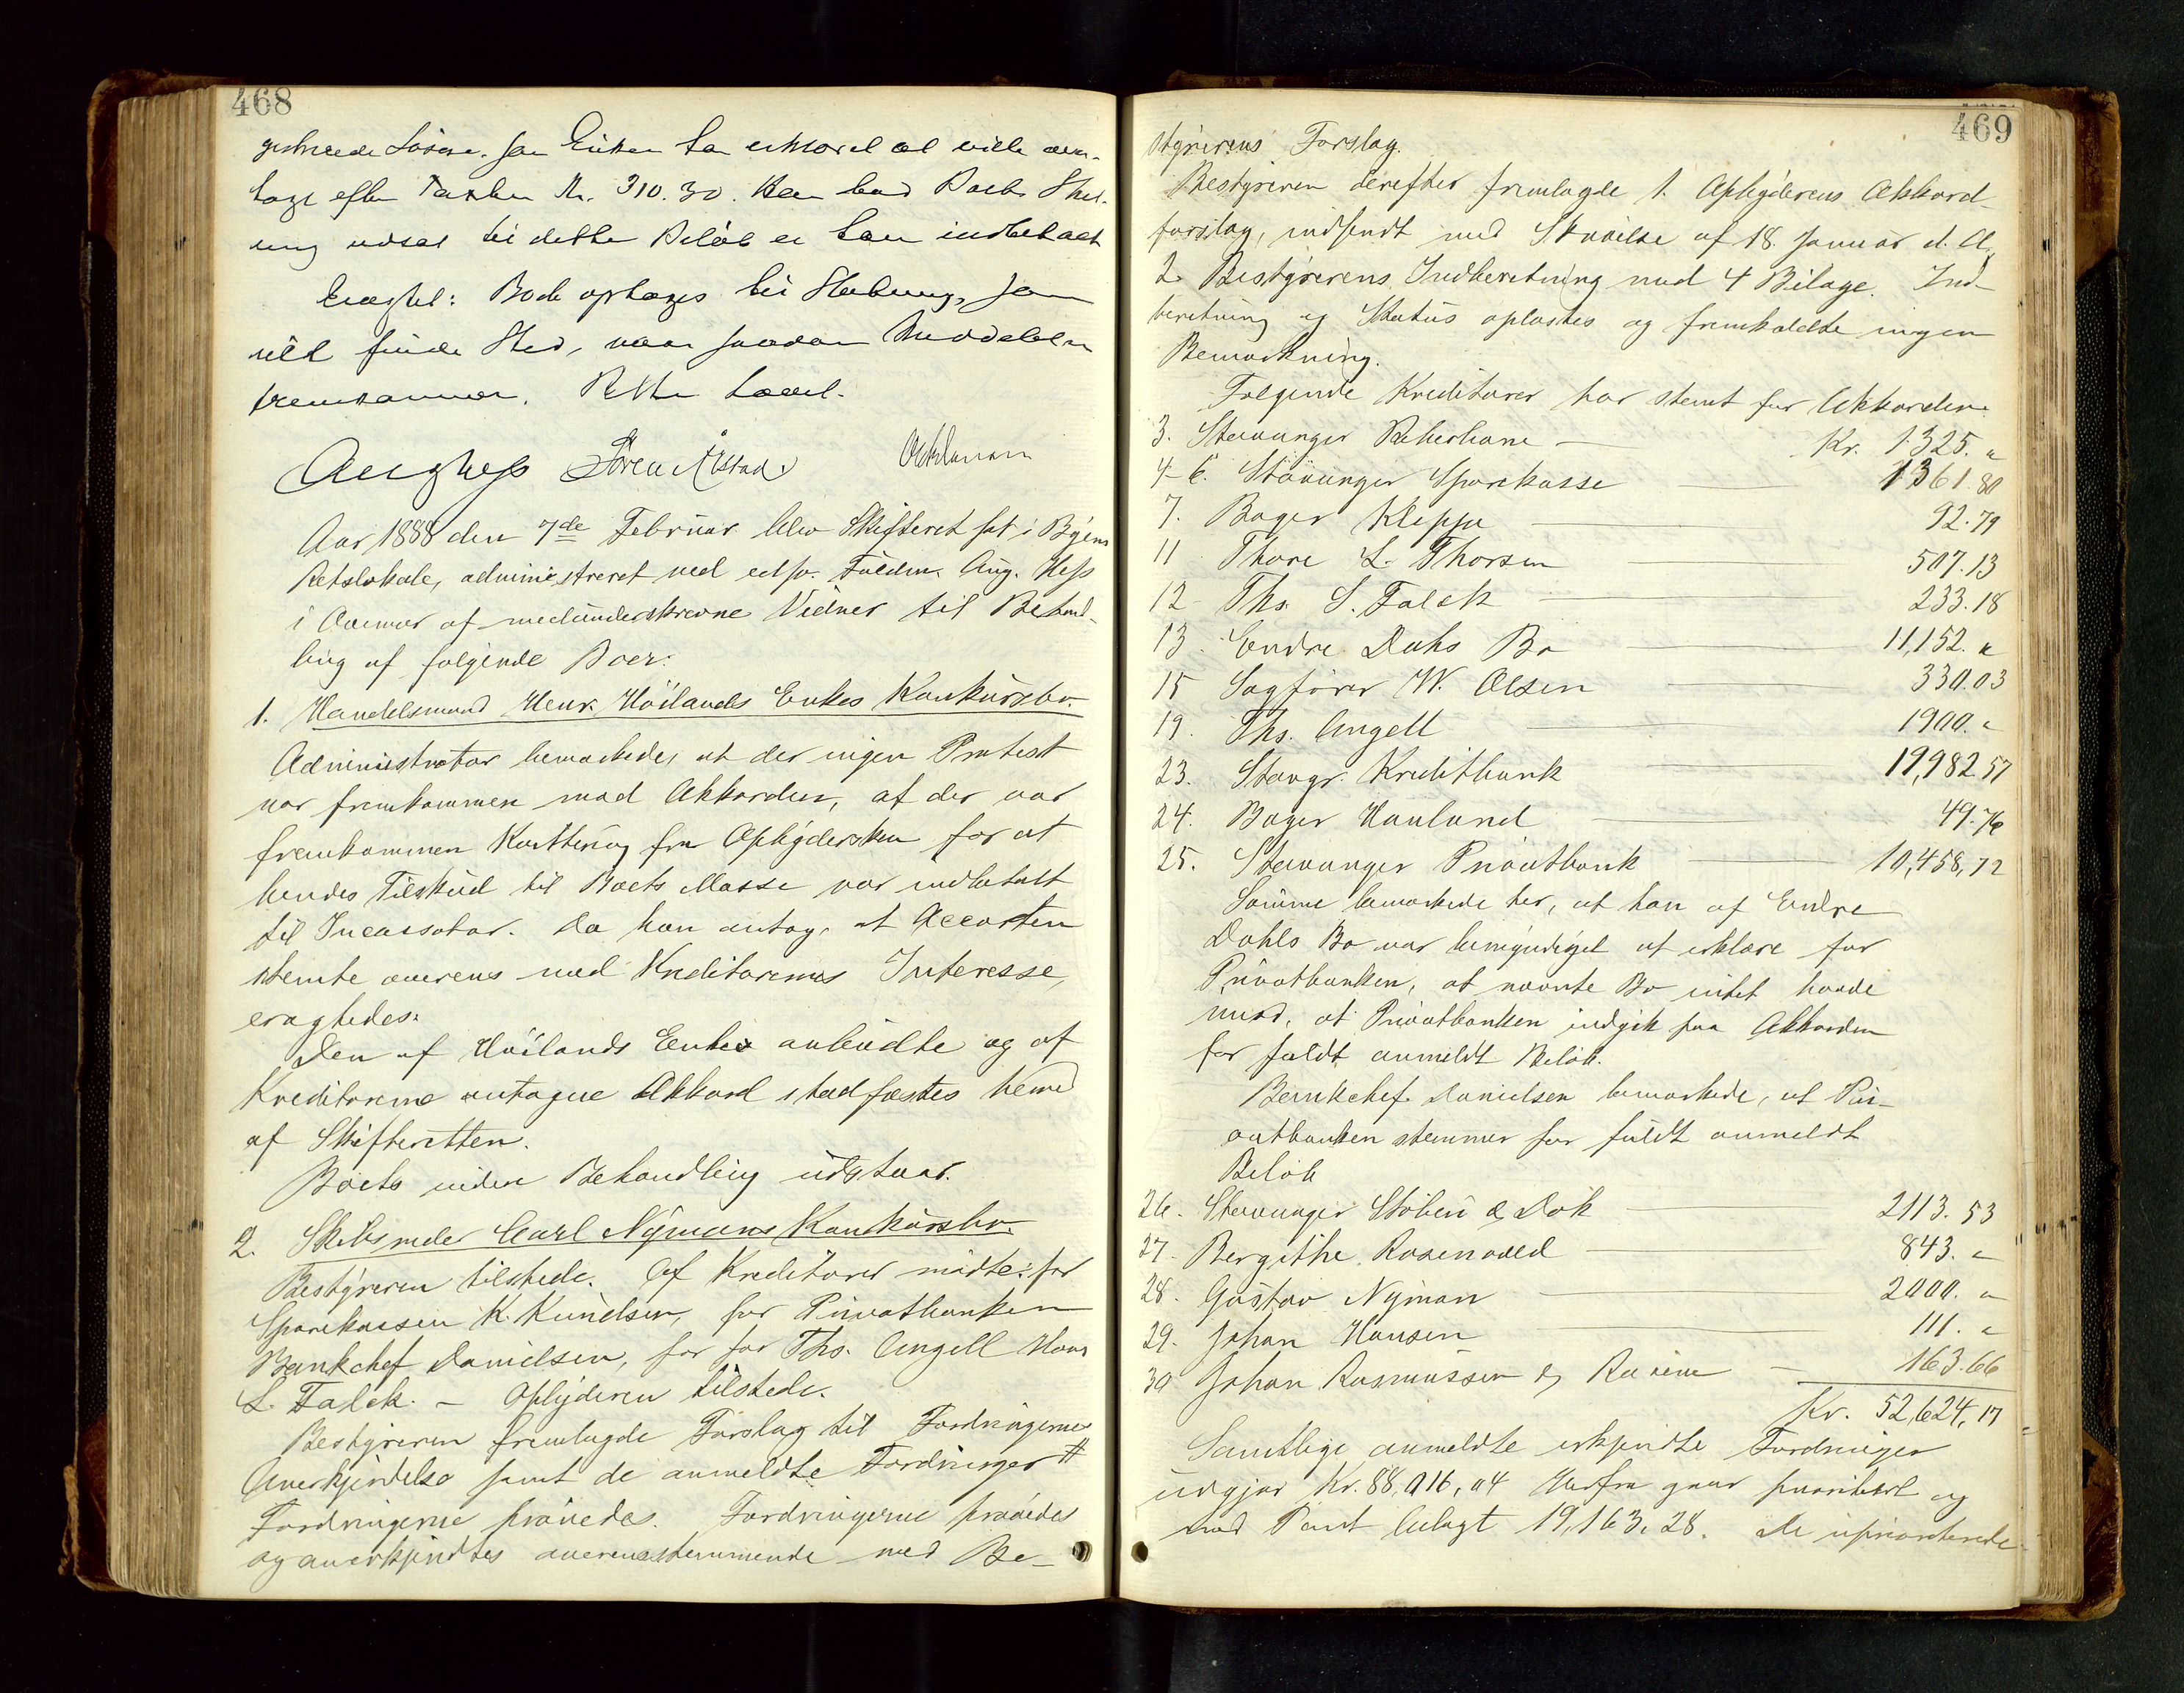 468
tage efter Taxten Kr. 310.30. 
ning udsat til dette Beløb er indbetalt
Eragtet: Boet optages til Slutning, som
vil finde Sted, naar saadan Meddelelse
fremkommer. Retten hævet.
Aug Hess Sören Alstad
Aar 1888 den 7de Februar blev Skifteret sat i Byens
Retslokale, administreret ved edsv. Fuldm. Aug. Hess
i Nærvær af medunderskrevne Vidner til Behand-
ling af følgende Boer:
1. Handelsmand Henr. Höilands Enkes Konkursbo.
Administrator bemærkede, at der ingen Protest
var fremkommen mod Akkorden, at der var
fremkommen Kvittering fra Opbydersken for at
hendes Tilskud til Boets Masse var indbetalt
til Incassator. Da han antog, at Accorden
stemte overens med Kreditorernes Interesse,
eragtedes:
Den af Höilands Enke anbudte og af
Kreditorerne antagne Akkord stadfæstes herved
af Skifteretten.
Boets videre Behandling udstaar.
2. Skibsreder Carl Nymans Konkursbo.
Bestyreren tilstede. Af Kreditorer mødte: for
Sparekassen K. Knudsen, for Privatbanken
Bankchef Danielsen, for for Ths. Angell Hans
L. Falck. – Opbyderen tilstede.
Bestyreren fremlagde Forslag til Fordringernes
Anerkjendelse samt de anmeldte Fordringer #
Fordringerne prøvedes. Fordringerne prøvedes
og anerkjendtes overensstemmende med Be-
469
styrerens Forslag.
Bestyreren derefter fremlagde 1. Opbyderens Akkord-
forslag, indsendt med Skrivelse af 18 Januar d. A.
2. Bestyrerens Indberetning med 4 Bilage. Ind-
beretning og Status oplæstes og fremkaldte ingen
Bemærkning.
Følgende Kreditorer har stemt for Akkorden
3. Stavanger Reberbane — Kr. 1325. "
4-6. Stavanger Sparekasse — 1361.80
7. Bager Kleppa — 92.79
11 Thore L. Thorsen — 507.13
12 Ths. S. Falck — 233.18
13. Endre Dahls Bo — 11,152. "
15 Sagfører W. Olsen — 330.03
19. Ths. Angell — 1900. "
23. Stavgr. Kreditbank — 19,982.57
24. Bager Hauland — 49.76
25. Stavanger Privatbank — 10,458,72
Somme bemærkede her, at han af Endre
Dahls Bo var bemyndiget at erklære for
Privatbanken, at nævnte Bo intet havde
mod, at Privatbanken indgik paa Akkorden
for fuldt anmeldt Beløb.
Bankchef Danielsen bemærkede, at Pri-
vatbanken stemmer for fuldt anmeldt
Beløb
26. Stavanger Støberi & Dok — 2113.53
27. Bergithe Rosenvold — 843. "
28. Gustav Nyman — 2000. "
29. Johan Hansen — 111. "
30 Johan Rasmussen & — 163.66
Kr. 52,624,17
Samtlige anmeldte erkjendte Fordringer
udgjør Kr. 88,016,04 Herfra gaar prioritert og
med Pant belagt 19,163,28. De uprioriterede